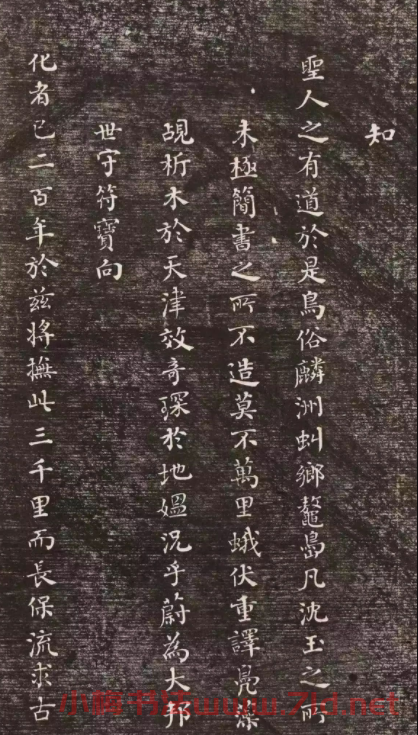 知
聖人之有道於是鳥俗麟洲虯鄉鼇島凡沈玉之所
未極簡書之所不造莫不萬里蛾伏重譯鳧藻
覘析木於天津效奇琛於地媼況乎蔚為大邦
世守符寶向
化者已二百年於茲將撫此三千里而長保流求古
小楷书法www.7ld.net